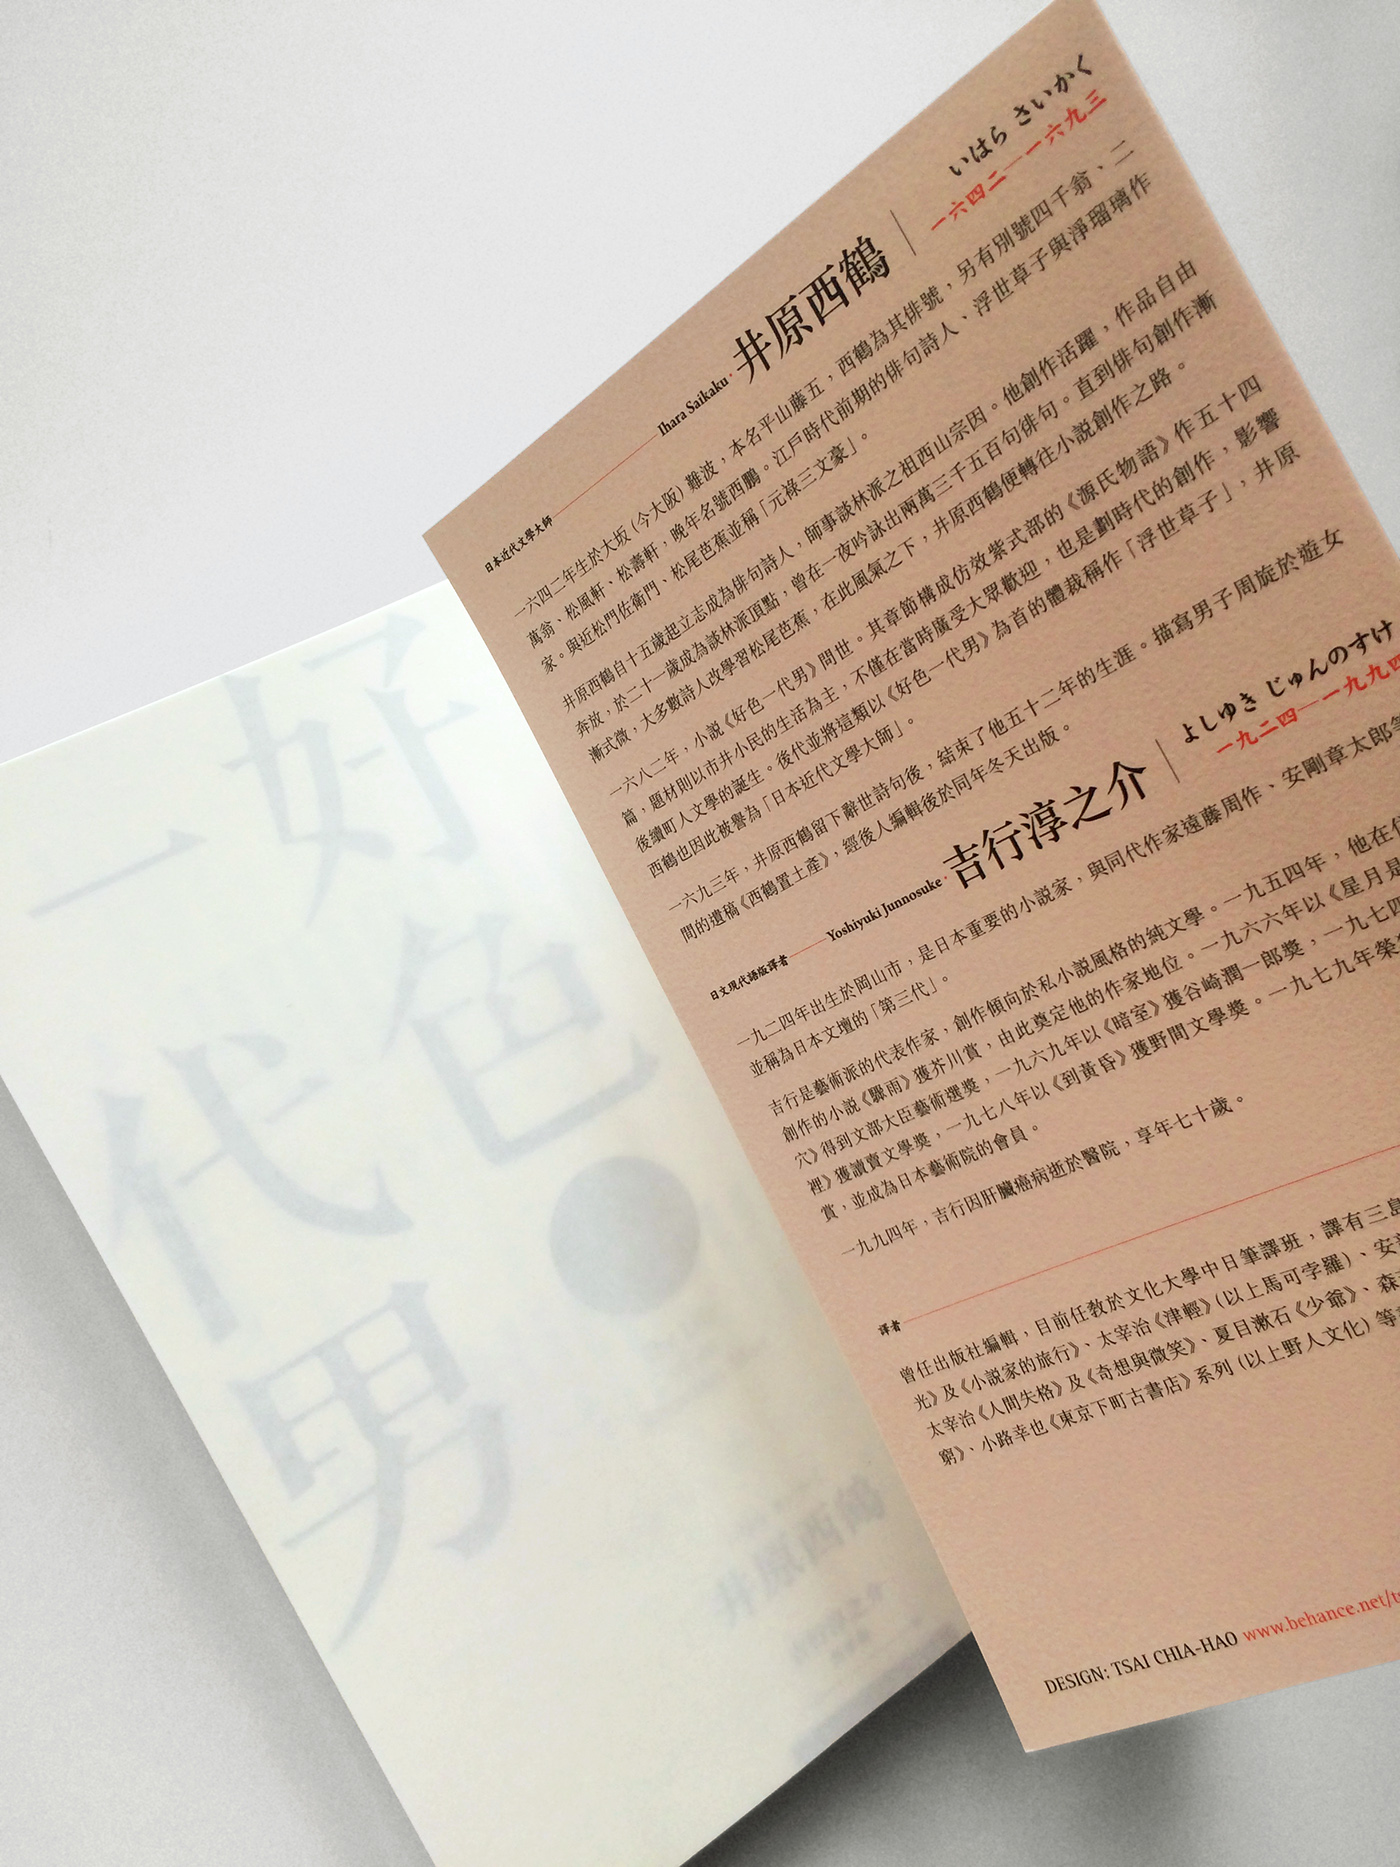 好色
一代男
日本近代文學大師
Ihara Saikaku・井原西鶴
いはら さいかく
一六四二—一六九三
一六四二年生於大坂(今大阪)難波,本名平山藤五,西鶴為其俳號,另有別號四千翁、二
萬翁、松風軒、松壽軒,晚年名號西鵬。江戶時代前期的俳句詩人、浮世草子與淨瑠璃作
家。與近松門佐衛門、松尾芭蕉並稱「元祿三文豪」。
井原西鶴自十五歲起立志成為俳句詩人,師事談林派之祖西山宗因。他創作活躍,作品自由
奔放,於二十一歲成為談林派頂點,曾在一夜吟詠出兩萬三千五百句俳句。直到俳句創作漸
漸式微,大多數詩人改學習松尾芭蕉,在此風氣之下,井原西鶴便轉往小說創作之路。
一六八二年,小說《好色一代男》問世。其章節構成仿效紫式部的《源氏物語》作五十四
篇,題材則以市井小民的生活為主,不僅在當時廣受大眾歡迎,也是劃時代的創作,影響
後續町人文學的誕生。後代並將這類以《好色一代男》為首的體裁稱作「浮世草子」,井原
西鶴也因此被譽為「日本近代文學大師」。
一六九三年,井原西鶴留下辭世詩句後,結束了他五十二年的生涯。描寫男子周旋於遊女
間的遺稿《西鶴置土產》,經後人編輯後於同年冬天出版。
日文現代語版譯者
Yoshiyuki Junnosuke・吉行淳之介
よしゆき じゅんのすけ
一九二四—一九九四
一九二四年出生於岡山市,是日本重要的小說家,與同代作家遠藤周作、安剛章太郎等
並稱為日本文壇的「第三代」。
吉行是藝術派的代表作家,創作傾向於私小說風格的純文學。一九五四年,他在住
創作的小說《驟雨》獲芥川賞,由此奠定他的作家地位。一九六六年以《星月是
穴》得到文部大臣藝術選獎,一九六九年以《暗室》獲谷崎潤一郎獎,一九七四
裡》獲讀賣文學獎,一九七八年以《到黃昏》獲野間文學獎。一九七九年榮
賞,並成為日本藝術院的會員。
一九九四年,吉行因肝臟癌病逝於醫院,享年七十歲。
譯者
曾任出版社編輯,目前任教於文化大學中日筆譯班,譯有三島
光》及《小說家的旅行》、太宰治《津輕》(以上馬可孛羅)、安
太宰治《人間失格》及《奇想與微笑》、夏目漱石《少爺》、森
窮》、小路幸也《東京下町古書店》系列(以上野人文化)等
DESIGN: TSAI CHIA-HAO www.behance.net/ts